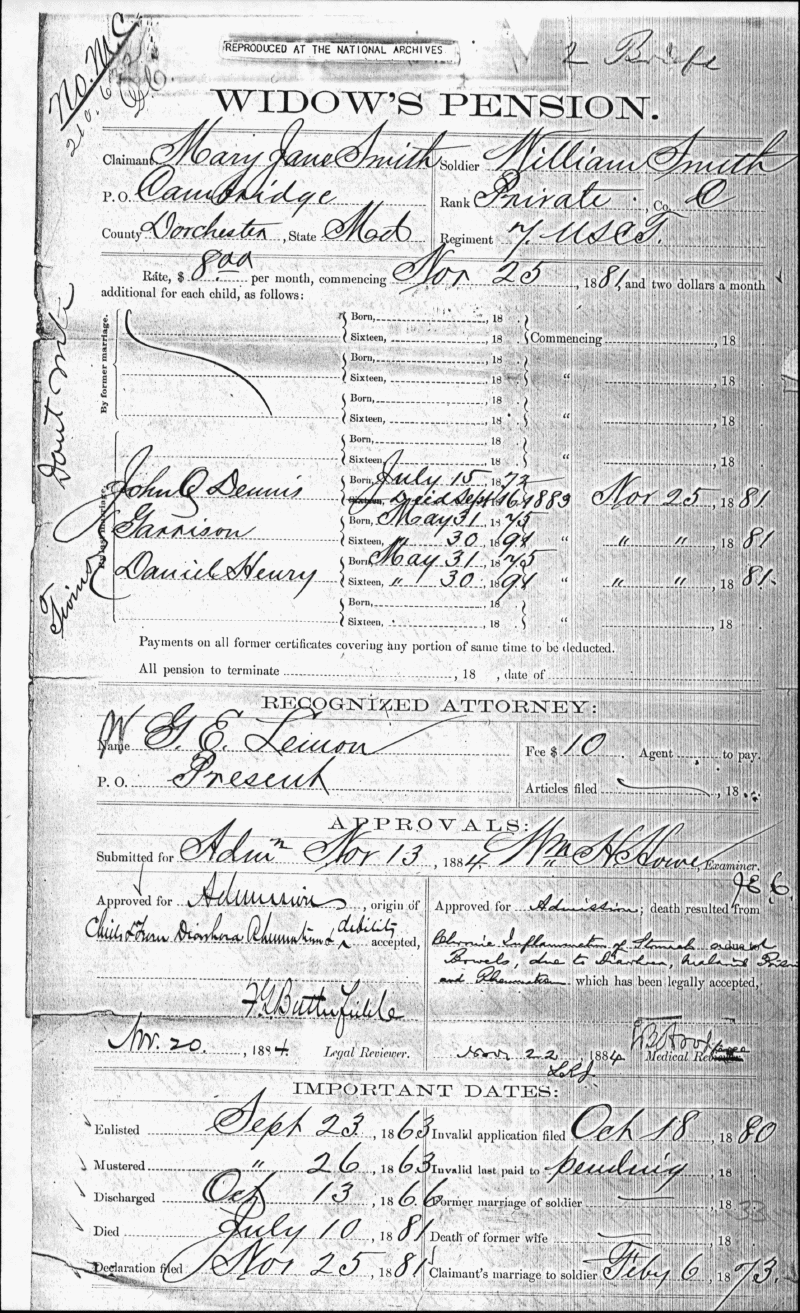 REPRODUCED AT THE NATIONAL ARCHIVES
No. MC
WIDOW'S PENSION.
Claimant Mary Jane Smith Soldier William Smith
P.O. Cambridge Rank Private Co. C
County Dorchester, State Md Regiment 7. USCT.
Rate, $ 8.00 per month, commencing Nov 25, 1881, and two dollars a month
additional for each child, as follows:
By former marriage.
Born, 18
Sixteen, 18 Commencing , 18
Born, 18
Sixteen, 18 " , 18
Born, 18
Sixteen, 18 " , 18
Born, 18
Sixteen, 18 " , 18
John Dennis Born, July 15 1872
Died Sept 16 1883 Nov 25, 1881
Garrison Born, May 31, 1875
Sixteen, " 30, 1891 " " " , 1881
Daniel Henry Born, May 31, 1875
Sixteen, " 30, 1891 " " " , 1881
Born, 18
Sixteen, 18 " , 18
Twins
Payments on all former certificates covering any portion of same time to be deducted.
All pension to terminate , 18 , date of
RECOGNIZED ATTORNEY:
Name G. E. Lemon Fee $ 10 Agent to pay.
P. O. Present Articles filed , 18
APPROVALS:
Submitted for Admn Nov 13, 1884. Wm H Howe, Examiner.
Approved for Admission, origin of
debility
Diarrhora Rheumatism & accepted,
F. Butterfield
Nov. 20., 1884 Legal Reviewer.
Approved for Admission; death resulted from
Chronic Inflammation of Stomach and
Bowels, due to Diarrhea,
and Rheumatism which has been legally accepted,
Nov 22, 1884 Medical Reviewer
IMPORTANT DATES:
Enlisted Sept 23, 1863 Invalid application filed Oct 18, 1880
Mustered " 26, 1863 Invalid last paid to pending, 18
Discharged Oct 13, 1866 Former marriage of soldier , 18
33
Died July 10, 1881 Death of former wife , 18
Declaration filed Nov 25, 1881 Claimant's marriage to soldier Feby 6, 1873.